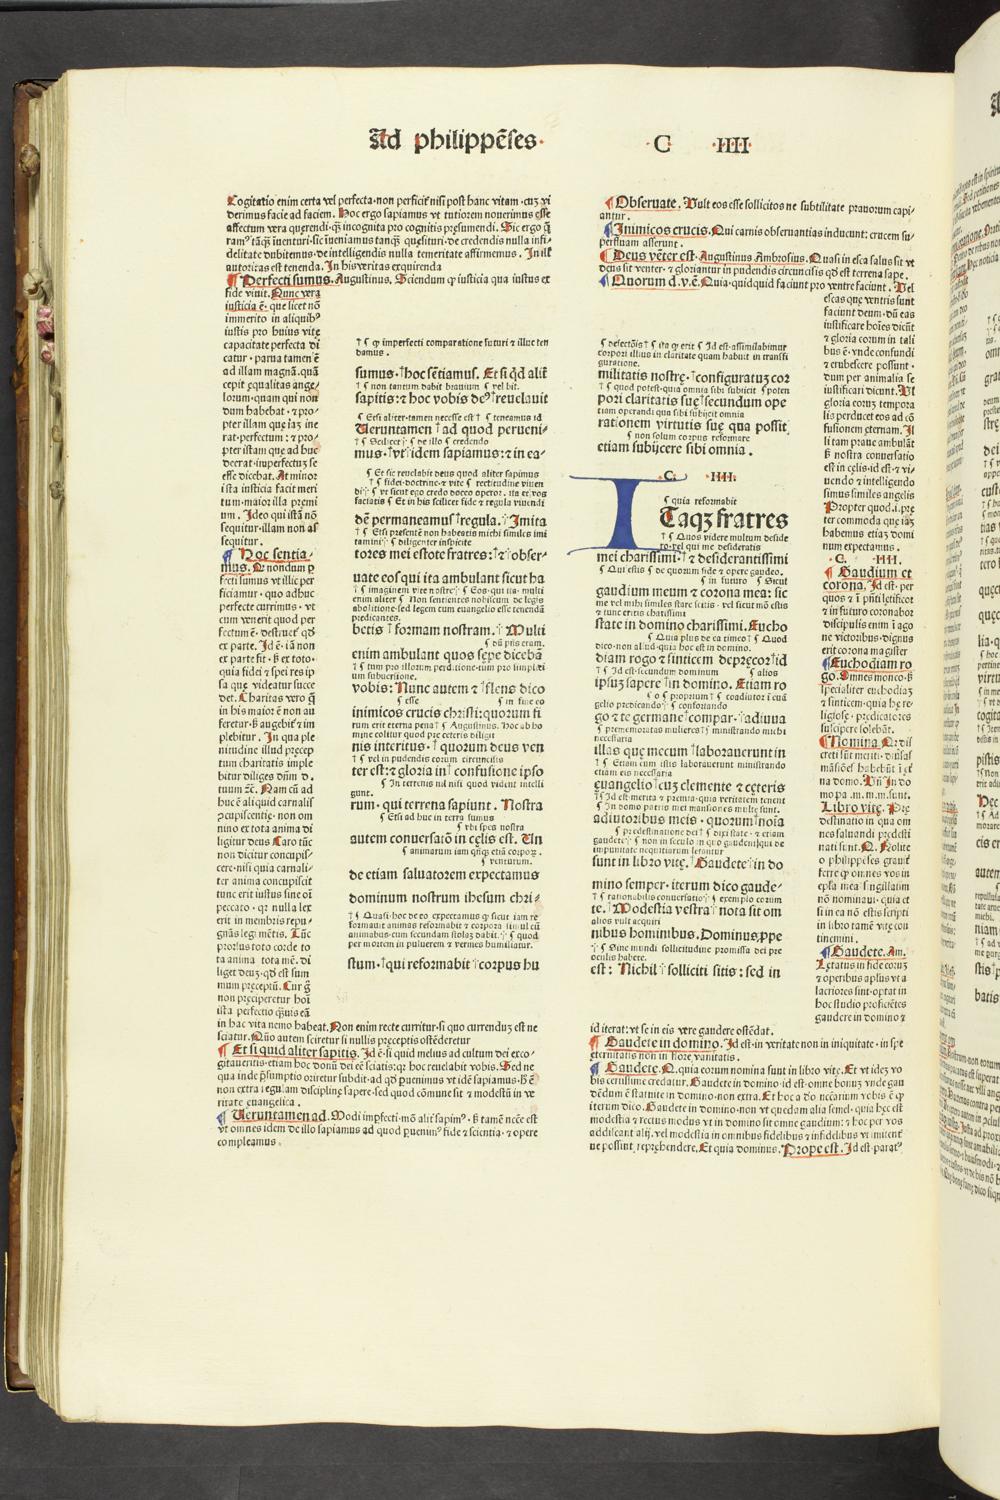 Ad philippēses·
C ·IIII·
Cogitatio enim certa vel perfecta·non perficit nisi post hanc vitam·cuz vi
derimus facie ad faciem. Hoc ergo sapiamus vt tutiorem nouerimus esse
affectum vera querendi·q̄ incognita pro cognitis presumendi. Sic ergo
delitate dubitemus·de intelligendis nulla temeritate affirmemus. In
autoritas est tenenda. In his veritas exquirenda
¶ Perfecti sumus. Augustinus. Sciendum ꝙ iusticia qua iustus ex
fide viuit. Nunc vera
iusticia ē· que licet nō
immerito in aliquibꝰ
iustis pro huius vite
capacitate perfecta di
catur·parua tamen ē
ad illam magnā.quā
cepit equalitas ange-
lorum·quam qui non
dum habebat·⁊ pro-
pter illam que iaz ine
rat·perfectum:⁊ pro-
pter istam que ad huc
deerat·imperfectuz se
esse dicebat. At minor
ista iusticia facit meri
tum·maior illa premi
um. Ideo qui istā nō
sequitur·illam non as
sequitur.
¶ Hoc sentia-
mus. Q. nondum p
fecti sumus vt illic per
ficiamur·quo adhuc
perfecte currimus·vt
cum venerit quod per
fectum ē·destruet' qd
ex parte. Id ē·iā non
ex parte sit·ß ex toto·
quia fidei ⁊ spei res ip
sa que videatur succe
det. Charitas vero q̄
in his maior ē non au
feretur·ß augebit' ⁊ im
plebitur. In qua ple
nitudine illud precep
tum charitatis imple
bitur diliges dn̄m d.
tuum ⁊c. Nam cū ad
huc ē aliquid carnalis
nino ex tota anima di
ligitur deus Caro tūc
non dicitur concupis-
cere·nisi quia carnali-
ter anima concupiscit
tunc erit iustus sine oī
peccato·qꝛ nulla lex
erit in membris repu-
gnās legi mētis. Tūc
prorsus toto corde to
ta anima tota mē. di
liget deuz·qd est sum
mum preceptū. Cur ḡ
non preciperetur hoī
ista perfectio quis eā
in hac vita nemo habeat. Non enim recte curritur·si quo currenduz est ne
sciatur. Quō autem sciretur si nullis preceptis ostēderetur
¶ Et si quid aliter sapitis. Id ē·si quid melius ad cultum dei exco-
gitaueritis·etiam hoc donū dei eē sciatis:qꝛ hoc reuelabit vobis. Sed ne
non extra regulam discipline sapere·sed quod cōmune sit ⁊ modestā in ve
ritate euangelica.
vt omnes idem de illo sapiamus ad quod puenimꝰ fide ⁊ scientia·⁊ opere
compleamus.
¶ ꝙ imperfecti comparatione futuri ⁊ illuc ten
damus.
sumus. hoc sētiamus. Et si qd alit
¶ non tantum dabit brauium ¶ vel bit.
sapitis:⁊ hoc vobis deꝰ reuelauit
¶ Etsi aliter·tamen necesse est ¶ teneamus id
Ueruntamen ad quod perueni-
¶ Scilicet ¶ de illo ¶ credendo
mus·vt idem sapiamus:⁊ in ea-
¶ Et sic reuelabit deus quod aliter sapimus
¶ fidei·doctrine·⁊ vite ¶ rectitudine viuen
di ¶ vt sicut ego credo doceo operor. ita et vos
faciatis ¶ Et in his scilicet fide ⁊ regula viuendi
dē permaneamus regula. Imita
¶ Etsi presentē non habeatis michi similes imi
tamini ¶ diligenter inspicite
tores mei estote fratres:⁊ obser-
uate eos qui ita ambulant sicut ha
¶ imaginem vite nostre ¶ Eos·qui ita·multi
enim aliter ¶ Non sentientes nobiscum de legis
abolitione·sed legem cum euangelio esse tenendā
predicantes.
betis formam nostram. Multi
¶ dū pn̄s eram.
enim ambulant quos sepe dicebā
¶ tum pro illorum perditione·tum pro simplici
um subuersione.
vobis: Nunc autem ⁊ flens dico
¶ esse ¶ in fine eo
inimicos crucis christi:quorum fi
rum erit eterna pena ¶ Augustinus. Hoc ab ho
mine colitur quod pre ceteris diligit
nis interitus· quorum deus ven
¶ vel in pudendis eorum circuncisis
ter est:⁊ gloria in confusione ipso
¶ In terrenis nil nisi quod vident intelli
gunt.
rum·qui terrena sapiunt. Nostra
¶ Etsi ad huc in terra sumus
¶ vbi spes nostra
autem conuersatiō in celis est. Un
¶ animarum iam
¶ venturum.
de etiam saluatorem expectamus
dominum nostrum ihesum chri-
¶ Quasi·hoc de eo expectamus ꝙ sicut iam re
formauit animas reformabit ⁊ corpora simul cū
animabus·cum secundam stolaz dabit. ¶ quod
per mortem in puluerem ⁊ vermes humiliatur.
stum·qui reformabit corpus hu
¶ Obseruate. Uult eos esse sollicitos ne subtilitate prauorum capi-
antur.
¶ Inimicos crucis. Qui carnis obseruantias inducunt: crucem su-
perfluam asserunt.
¶ Deus vēter est. Augustinus Ambrosius. Quasi in esca salus sit vt
deus sit venter·⁊ gloriantur in pudendis circuncisis qd est terrena sape.
¶ Quorum d.v.ē. Quia·quidquid faciunt pro ventre faciunt. Uel
¶ defectōis ¶ ita ꝙ erit ¶ Id est·assimilabimur
corpori illius in claritate quam habuit in transfi
guratione.
militatis nostre· configuratuz cor
¶ quod potest·qua omnia sibi subiicit ¶ poten
pori claritatis sue secundum ope
tiam operandi qua sibi subiicit omnia
rationem virtutis sue qua possit
¶ non solum corpus reformare
etiam subijcere sibi omnia.
·C· ·IIII·
¶ quia reformabit
ITaqz fratres
¶ Quos videre multum deside
ro·vel qui me desideratis
mei charissimi· ⁊ desiderantissimi
¶ Qui estis ¶ de quorum fide ⁊ opere gaudeo.
¶ in futuro ¶ Sicut
gaudium meum ⁊ corona mea: sic
me vel mihi similes stare scitis·vel sicut mō estis
⁊ tunc eritis charissimi
state in domino charissimi. Eucho
¶ Quia plus de ea timeo ¶ Quod
dico·non aliud·quia hoc est in domino.
diam rogo ⁊ sinticem deprecor id
¶ Id est·secundum dominum ¶ alios
ipsuz sapere in domino. Etiam ro
¶ o ¶ proprium ¶ coadiutor ī euā
gelio predicando ¶ confortando
go ⁊ te germane compar· adiuua
¶ prememoratas mulieres ¶ ministrando michi
necessaria
illas que mecum laborauerunt in
¶ Etiam cum istis laborauerunt ministrando
etiam eis necessaria
euangelio cuz clemente ⁊ ceteris
¶ Id est·merita ⁊ premia·quia veritatem tenent
¶ In domo patris mei mansiones multe sunt.
adiutoribus meis· quorum noīa
¶ predestinatione dei ¶ dixi state·⁊ etiam
gaudete ¶ non in seculo in quo gaudent·qui de
impunitate nequitiarum letantur
sunt in libro vite. Gaudete in do
mino semper·iterum dico gaude-
¶ rationabilis conuersatio ¶ exemplo eorum
te. Modestia vestra nota sit om
alios vult acquiri
nibus hominibus. Dominus ppe
¶ Sine mundi sollicitudine promissa dei pre
oculis habete.
est: Nichil solliciti sitis: sed in
escas que ventris sunt
faciunt deum·dū eas
iustificare hoīes dicūt
⁊ gloria eorum in tali
bus ē·vnde confundi
⁊ erubescere possunt·
dum per animalia se
iustificari dicunt. Uł
gloria eoruz tempora
lis perducet eos ad cō
fusionem eternam. Il
li tam praue ambulāt
ß nostra conuersatio
est in celis·id est·⁊ vi-
uendo ⁊ intelligendo
simus similes angelis
Propter quod.i.pre
ter commoda que iaz
habemus etiaz domi
num expectamus.
·C· ·IIII·
¶ Gaudium et
corona. Id est·per
quos ⁊ ī pn̄ti letificor
⁊ in futuro coronabor
discipulis enim ī ago
ne victoribus·dignus
erit corona magister
¶ Euchodiam ro
go. Omnes moneo·ß
specialiter euchodiaz
⁊ sinticem·quia he re-
ligiose·predicatores
suscipere solebāt.
¶ Nomina Q. di
mopa.m.m.m.sunt.
Libro vite. Pre
destinatio in qua om
nes saluandi predesti
nati sunt. Q. Nolite
o philippēses grauit
ferre ꝙ omnes vos in
epła mea singillatim
nō nominaui·quia et
si in ea nō estis scripti
in libro tamē vite con
tinemini.
¶ Gaudete. Am.
Letatus in fide eoruz
⁊ operibus·aplus vt a
lacriores sint·optat·in
hoc studio proficiētes
gaudere in domino ⁊
id iterat: vt se in eis vere gaudere ostēdat.
¶ Gaudete in domino. Id est·in veritate non in iniquitate·in spe
eternitatis non in flore vanitatis.
¶ Gaudete. Q. quia eorum nomina sunt in libro vite. Et vt idez vo
bis certissime credatur. Gaudete in domino·id est·omne bonuz vnde gau
dēdum ē statuite in domino·non extra. Et hoc a dō necarium vobis ē ꝙ
iterum dico. Gaudete in domino·non vt quedam alia semel·quia hec est
modestia ⁊ rectus modus vt in domino sit omne gaudium: ⁊ hoc per vos
addiscant alij. vel modestia in omnibus fidelibus ⁊ infidelibus vt imitent'
ne possint reprehendere. Et quia dominus. Prope est. Id est·parat'